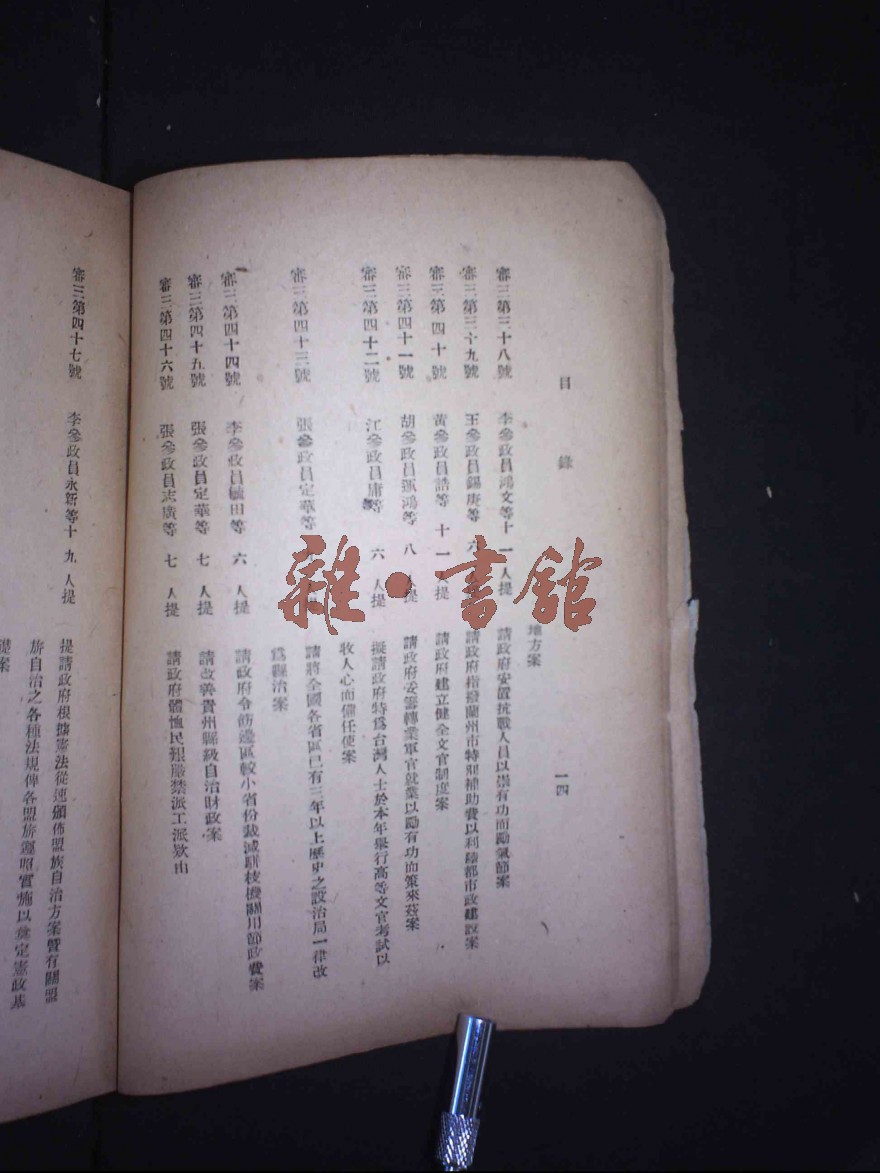 目錄 一四
地方案
審三第三十八號 李參政員鴻文等十一人提 請政府安置抗戰人員以崇有功而勵氣節案
審三第三十九號 王參政員錫庚等六 請政府指撥蘭州市特別補助費以利陸都市政建設案
審三第四十號 黃參政員誥等十一人提 請政府建立健全文官制度案
審三第四十一號 胡參政員運鴻等八人提 請政府妥籌轉業軍官就業以勵有功而策來茲案
審三第四十二號 江參政員庸等六人提 擬請政府特爲台灣人士於本年舉行高等文官考試以
收人心而備任使案
審三第四十三號 張參政員定華等 請將全國各省區已有三年以上歷史之設治局一律改
爲縣治案
審三第四十四號 李參政員毓田等六人提 請政府令飭邊區較小省份裁減駢枝機關用節政費案
審三第四十五號 張參政員定華等七人提 請改善貴州縣級自治財政案
審三第四十六號 張參政員志廣等七人提 請政府體恤民艱嚴禁派工派款由
審三第四十七號 李參政員永新等十九人提 提請政府根據憲法從速頒佈盟族自治方案暨有關盟
族自治之各種法規俾各盟族遵照實施以彙定憲政基
礎案
雜·書館